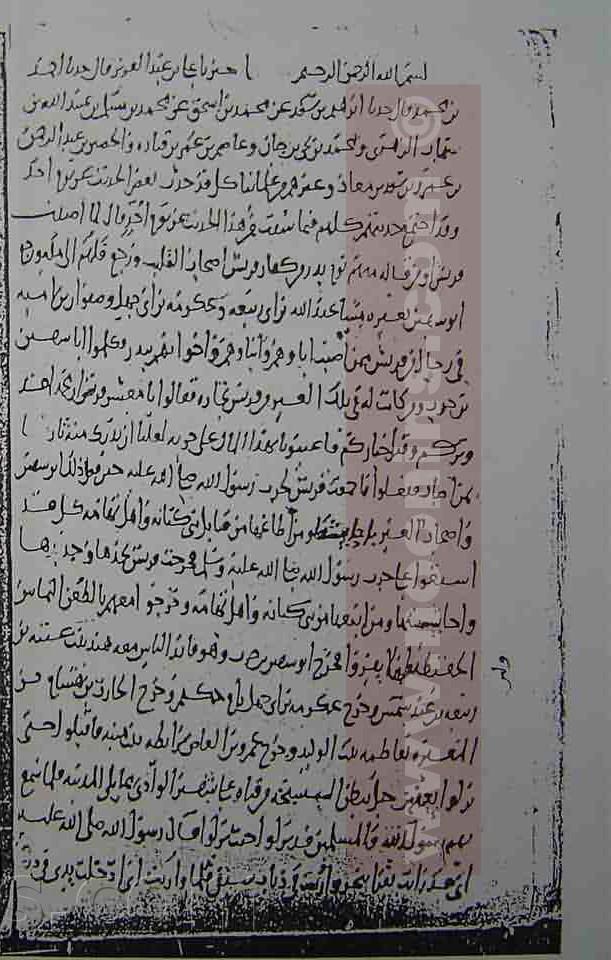 بسم الله الرحمن الرحيم اخبرنا علي بن عبد العزيز قال حدثنا احمد
بن محمد قال حدثنا ابرهيم بن سعد عن محمد بن اسحق عن محمد بن مسلم بن عبيد الله بن
شهاب الزهري ومحمد بن يحيى بن حبان وعاصم بن عمر بن قتاده والحصين بن عبد الرحمن
بن عمرو بن سعد بن معاذ وغيرهم من علمائنا كل قد حدث بعض الحديث عن يوم احد
وقد اجتمع حديثهم كلهم فيما سقت من هذا الحديث عن يوم احد قال لما اصيب
قريش او من قاله منهم يوم بدر من كفار قريش اصحاب القليب ورجع فلهم الى مكه ورجع
ابو سفين بعيره مشى عبد الله بن ابي ربيعه وعكرمه بن ابي جهل وصفوان بن اميه
في رجال من قريش ممن اصيب اباوهم وابناوهم واخوانهم ببدر وكلموا ابا سفين
بن حرب ومن كانت له في تلك العير من قريش تجاره فقالوا يا معشر قريش ان محمدا قد
وتركم وقتل خياركم فاعينونا بهذا المال على حربه لعلنا ان ندرك منه ثارنا
بمن اصاب منا ففعلوا فاجتمعت قريش لحرب رسول الله صلى الله عليه حين فعل ذلك ابو سفين
واصحاب العير ومن اطاعها من قبايل بني كنانه واهل تهامه كل قد
استغووا على حرب رسول الله صلى الله عليه وسلم فخرجت قريش بحدها وجدها
واحابيشها ومن اتبعها من بني كنانه واهل تهامه وخرجوا معهم بالظعن التماس
الحفيظه ولئلا يفروا فخرج ابو سفين بن حرب وهو قائد الناس معه هند بنت عتبه بن
ربيعه بن عبد شمس وخرج عكرمه بن ابي جهل بام حكيم وخرج الحارث بن هشام بن
المغيره بفاطمه بنت الوليد وخرج عمرو بن العاص بريطه بنت منبه فاقبلوا حتى
نزلوا بعينين جبل ببطن السبخه من قناه على شفير الوادي مما يلي المدينه فلما سمع
بهم رسول الله والمسلمين قد نزلوا حيث نزلوا قال رسول الله صلى الله عليه
اني قد رايت بقرا تنحر ورايت في ذباب سيفي ثلما ورايت اني ادخلت يدي في درع
www.noonhrs.com ©